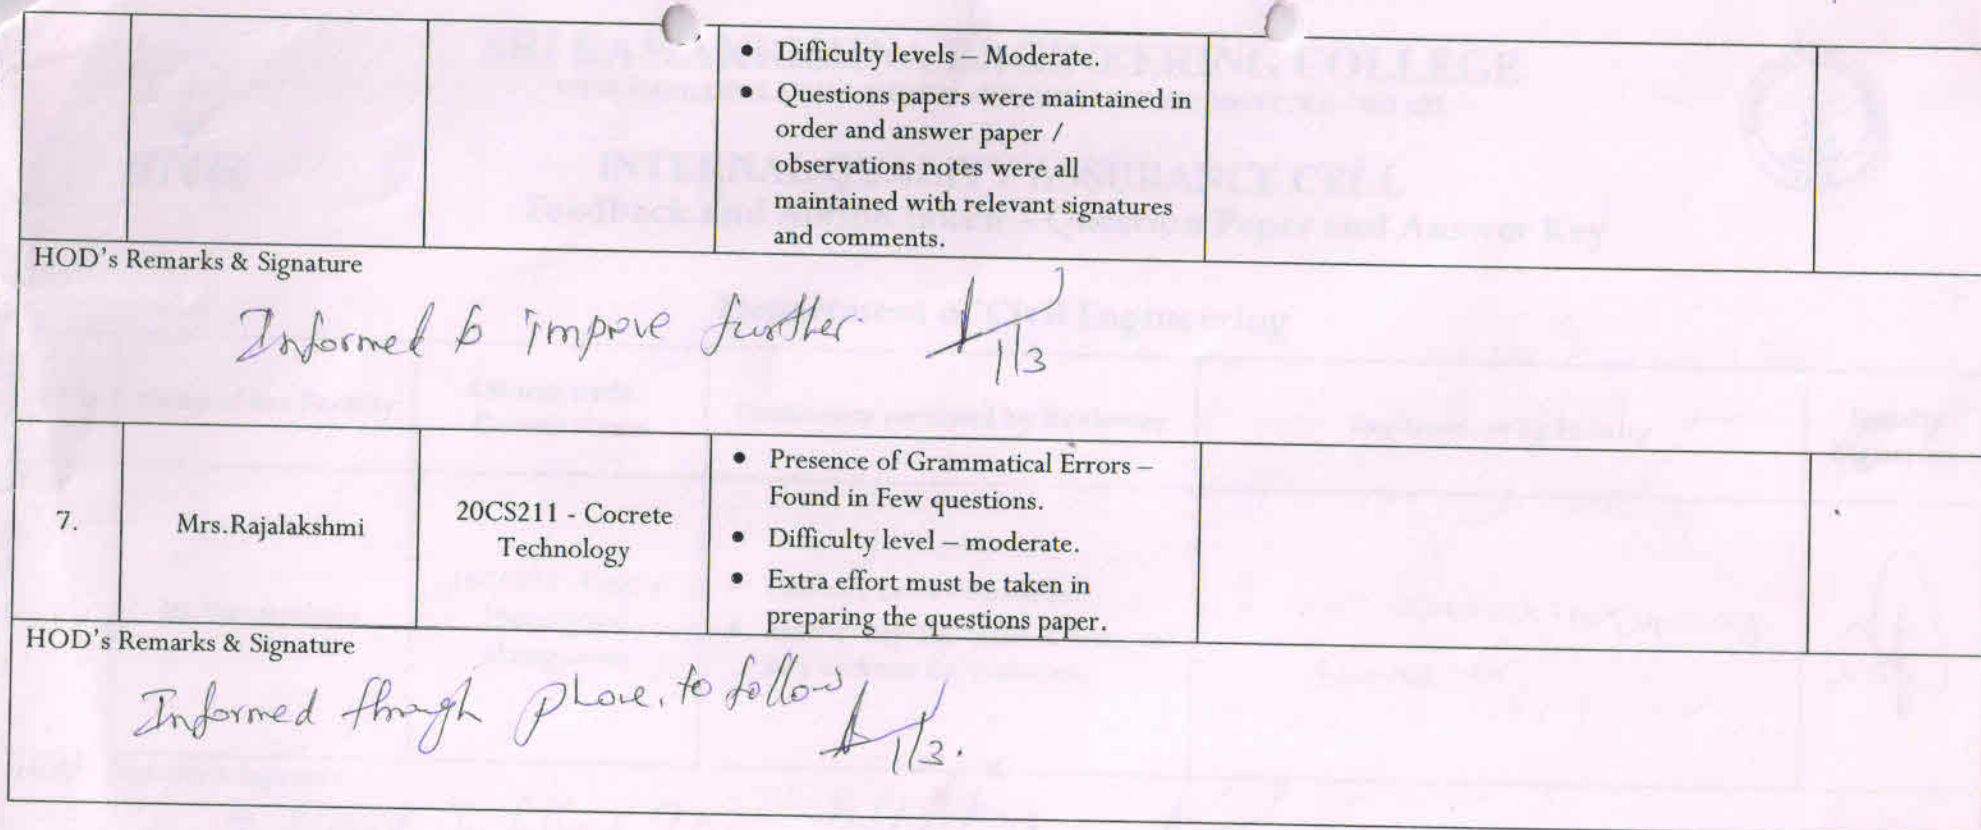 • Difficulty levels – Moderate.
• Questions papers were maintained in
order and answer paper /
observations notes were all
maintained with relevant signatures
and comments.
HOD's Remarks & Signature
Informed to improve further.
1/3
7.
Mrs.Rajalakshmi
20CS211 - Cocrete
Technology
• Presence of Grammatical Errors –
Found in Few questions.
• Difficulty level – moderate.
• Extra effort must be taken in
preparing the questions paper.
HOD's Remarks & Signature
Informed through phone, to follow
1/3.